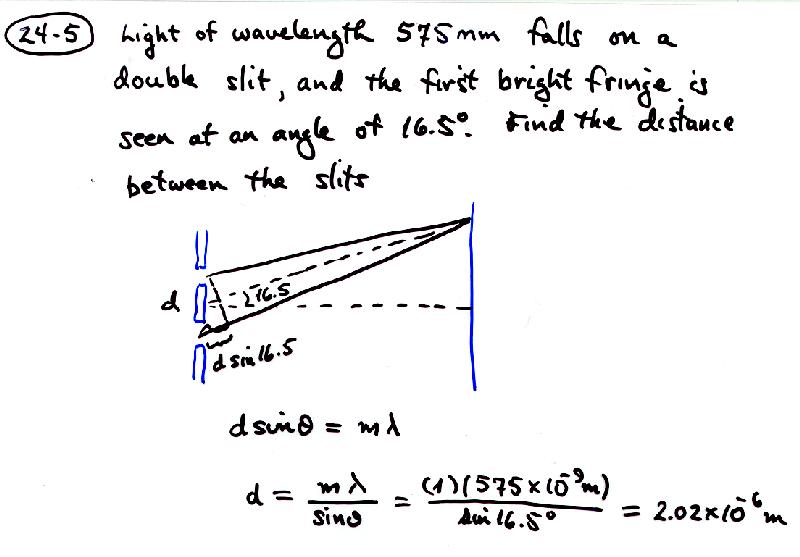 24-5 Light of wavelength 575 nm falls on a
double slit, and the first bright fringe is
seen at an angle of 16.5°. Find the distance
between the slits
d
∠16.5
d sin 16.5
d sinθ = mλ
d = mλ / sinθ = (1)(575×10⁻⁹m) / sin 16.5° = 2.02×10⁻⁶ m